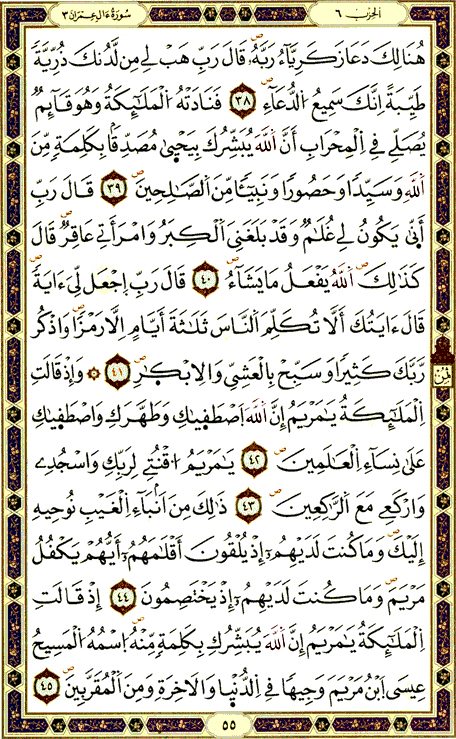 الحزب ٦
سُورَةُ ءَالِ عِمْرَانَ ٣
هُنَالِكَ دَعَا زَكَرِيَّآءُ رَبَّهُۥ قَالَ رَبِّ هَبْ لِے مِن لَّدُنكَ ذُرِّيَّةٗ
طَيِّبَةً اِنَّكَ سَمِيعُ اُ۬لدُّعَآءِ ٣٨ فَنَادَتْهُ اُ۬لْمَلَٰٓئِكَةُ وَهُوَ قَآئِمٞ
يُصَلِّے فِے اِ۬لْمِحْرَابِ أَنَّ اَ۬للَّهَ يُبَشِّرُكَ بِيَحْيَىٰ مُصَدِّقاَۢ بِكَلِمَةٖ مِّنَ
اَ۬للَّهِ وَسَيِّداٗ وَحَصُوراٗ وَنَبِيٓـٔاٗ مِّنَ اَ۬لصَّٰلِحِينَ ٣٩ قَالَ رَبِّ
أَنَّىٰ يَكُونُ لِے غُلَٰمٞ وَقَدْ بَلَغَنِيَ اَ۬لْكِبَرُ وَامْرَأَتِے عَاقِرٞ قَالَ
كَذَٰلِكَ اَ۬للَّهُ يَفْعَلُ مَا يَشَآءُ ٤٠ قَالَ رَبِّ اِ۪جْعَل لِّيَ ءَايَةٗ
قَالَ ءَايَتُكَ أَلَّا تُكَلِّمَ اَ۬لنَّاسَ ثَلَٰثَةَ أَيَّامٍ اِلَّا رَمْزاٗ وَاذْكُر
رَّبَّكَ كَثِيراٗ وَسَبِّحْ بِالْعَشِيِّ وَالِابْكٰ۪رِ ٤١ وَإِذْ قَالَتِ
ثمن
اِ۬لْمَلَٰٓئِكَةُ يَٰمَرْيَمُ إِنَّ اَ۬للَّهَ اَ۪صْطَفَيٰكِ وَطَهَّرَكِ وَاصْطَفَيٰكِ
عَلَىٰ نِسَآءِ اِ۬لْعَٰلَمِينَ ٤٢ يَٰمَرْيَمُ اُ۟قْنُتِے لِرَبِّكِ وَاسْجُدِے
وَارْكَعِے مَعَ اَ۬لرَّٰكِعِينَ ٤٣ ذَٰلِكَ مِنَ اَنۢبَآءِ اِ۬لْغَيْبِ نُوحِيهِ
إِلَيْكَ وَمَا كُنتَ لَدَيْهِمُۥٓ إِذْ يُلْقُونَ أَقْلَٰمَهُمُۥٓ أَيُّهُمْ يَكْفُلُ
مَرْيَمَ وَمَا كُنتَ لَدَيْهِمُۥٓ إِذْ يَخْتَصِمُونَ ٤٤ إِذْ قَالَتِ
اِ۬لْمَلَٰٓئِكَةُ يَٰمَرْيَمُ إِنَّ اَ۬للَّهَ يُبَشِّرُكِ بِكَلِمَةٖ مِّنْهُ اُ۪سْمُهُ اُ۬لْمَسِيحُ
عِيسَى اَ۪بْنُ مَرْيَمَ وَجِيهاٗ فِے اِ۬لدُّنْيَا وَالَاخِرَةِ وَمِنَ اَ۬لْمُقَرَّبِينَ ٤٥
٥٥